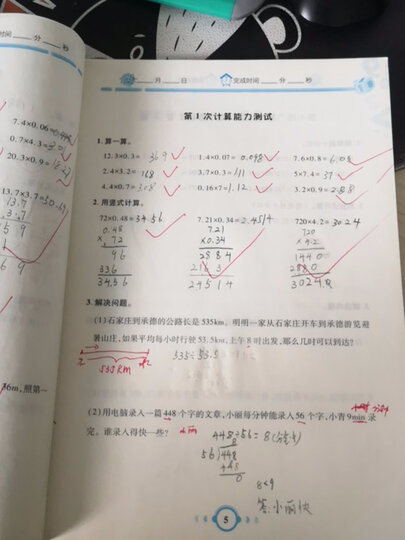 时间____分____秒
____月____日 完成时间____分____秒
第1次计算能力测试
7.4×0.06=
0.7×4.3=
20.3×0.9=
13.7×3.7=
1. 算一算。
12.3×0.3= 1.4×0.07=0.098 7.6×0.8=6.08
2.4×3.2= 168 3.7×0.3=111 5×7.4=37
4.4×0.7= 308 0.16×7=1.12 3.2×0.9=288
2. 用竖式计算。
72×0.48=34.56 7.21×0.34=2.4514 720×4.2=3024
0.48 7.21 720
×72 ×0.34 ×4.2
96 2884 1440
336 2163 2880
34.56 24514 3024.0
3. 解决问题。
(1)石家庄到承德的公路长是535km。明明一家从石家庄开车到承德游览避
暑山庄,如果平均每小时行驶53.5km,上午8时出发,那么几时可以到达?
535÷53.5
535KM
36m,照第一
(2)用电脑录入一篇448个字的文章,小丽每分钟能录入56个字,小青9min录
完。谁录入得快一些?
448÷56=8(分钟)
8
56 448
448
0
8<9
答:小丽快
5